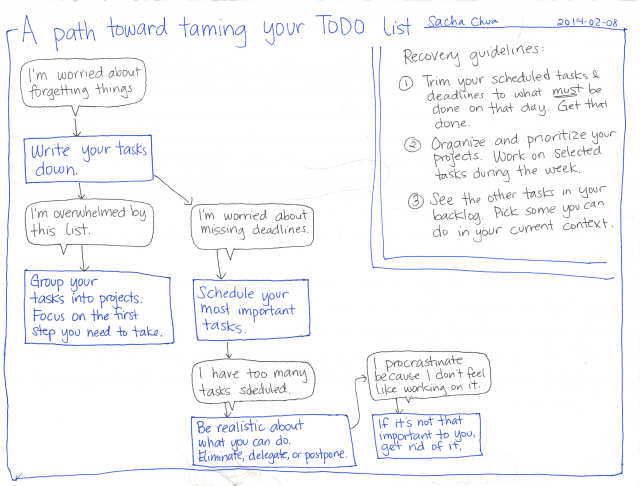 A path toward taming your TODO list
Sacha Chua
2014-02-08
I'm worried about
forgetting things
Write your tasks
down.
I'm overwhelmed by
this list.
Group your
tasks into projects.
Focus on the first
step you need to take.
I'm worried about
missing deadlines.
Schedule your
most important
tasks.
I have too many
tasks scheduled.
Be realistic about
what you can do.
Eliminate, delegate, or postpone.
I procrastinate
because I don't feel
like working on it.
If it's not that
important to you,
get rid of it.
Recovery guidelines:
① Trim your scheduled tasks &
deadlines to what must be
done on that day. Get that
done.
② Organize and prioritize your
projects. Work on selected
tasks during the week.
③ See the other tasks in your
backlog. Pick some you can
do in your current context.